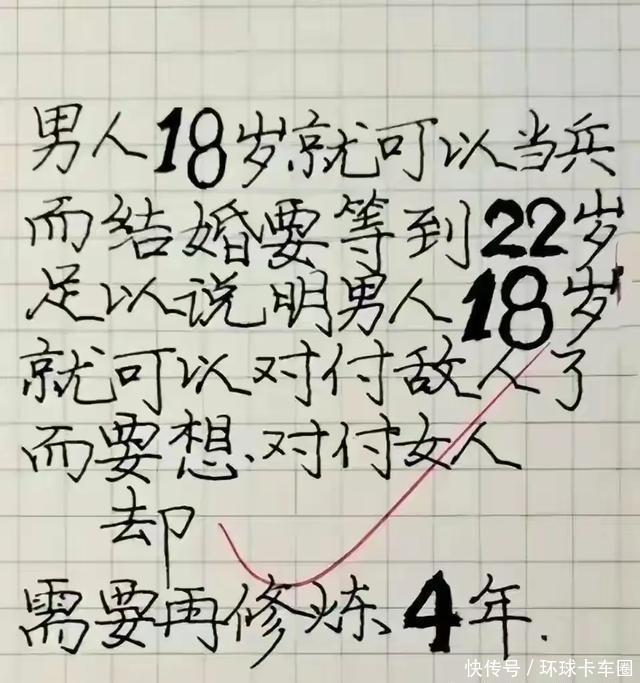 男人18岁就可以当兵
而结婚要等到22岁
足以说明男人18岁
就可以对付敌人了
而要想对付女人
却
需要再修炼4年.
快传号/环球卡车圈